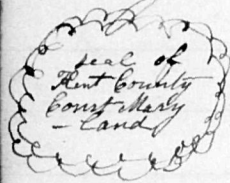 seal of
Kent County
Court Mary
- land